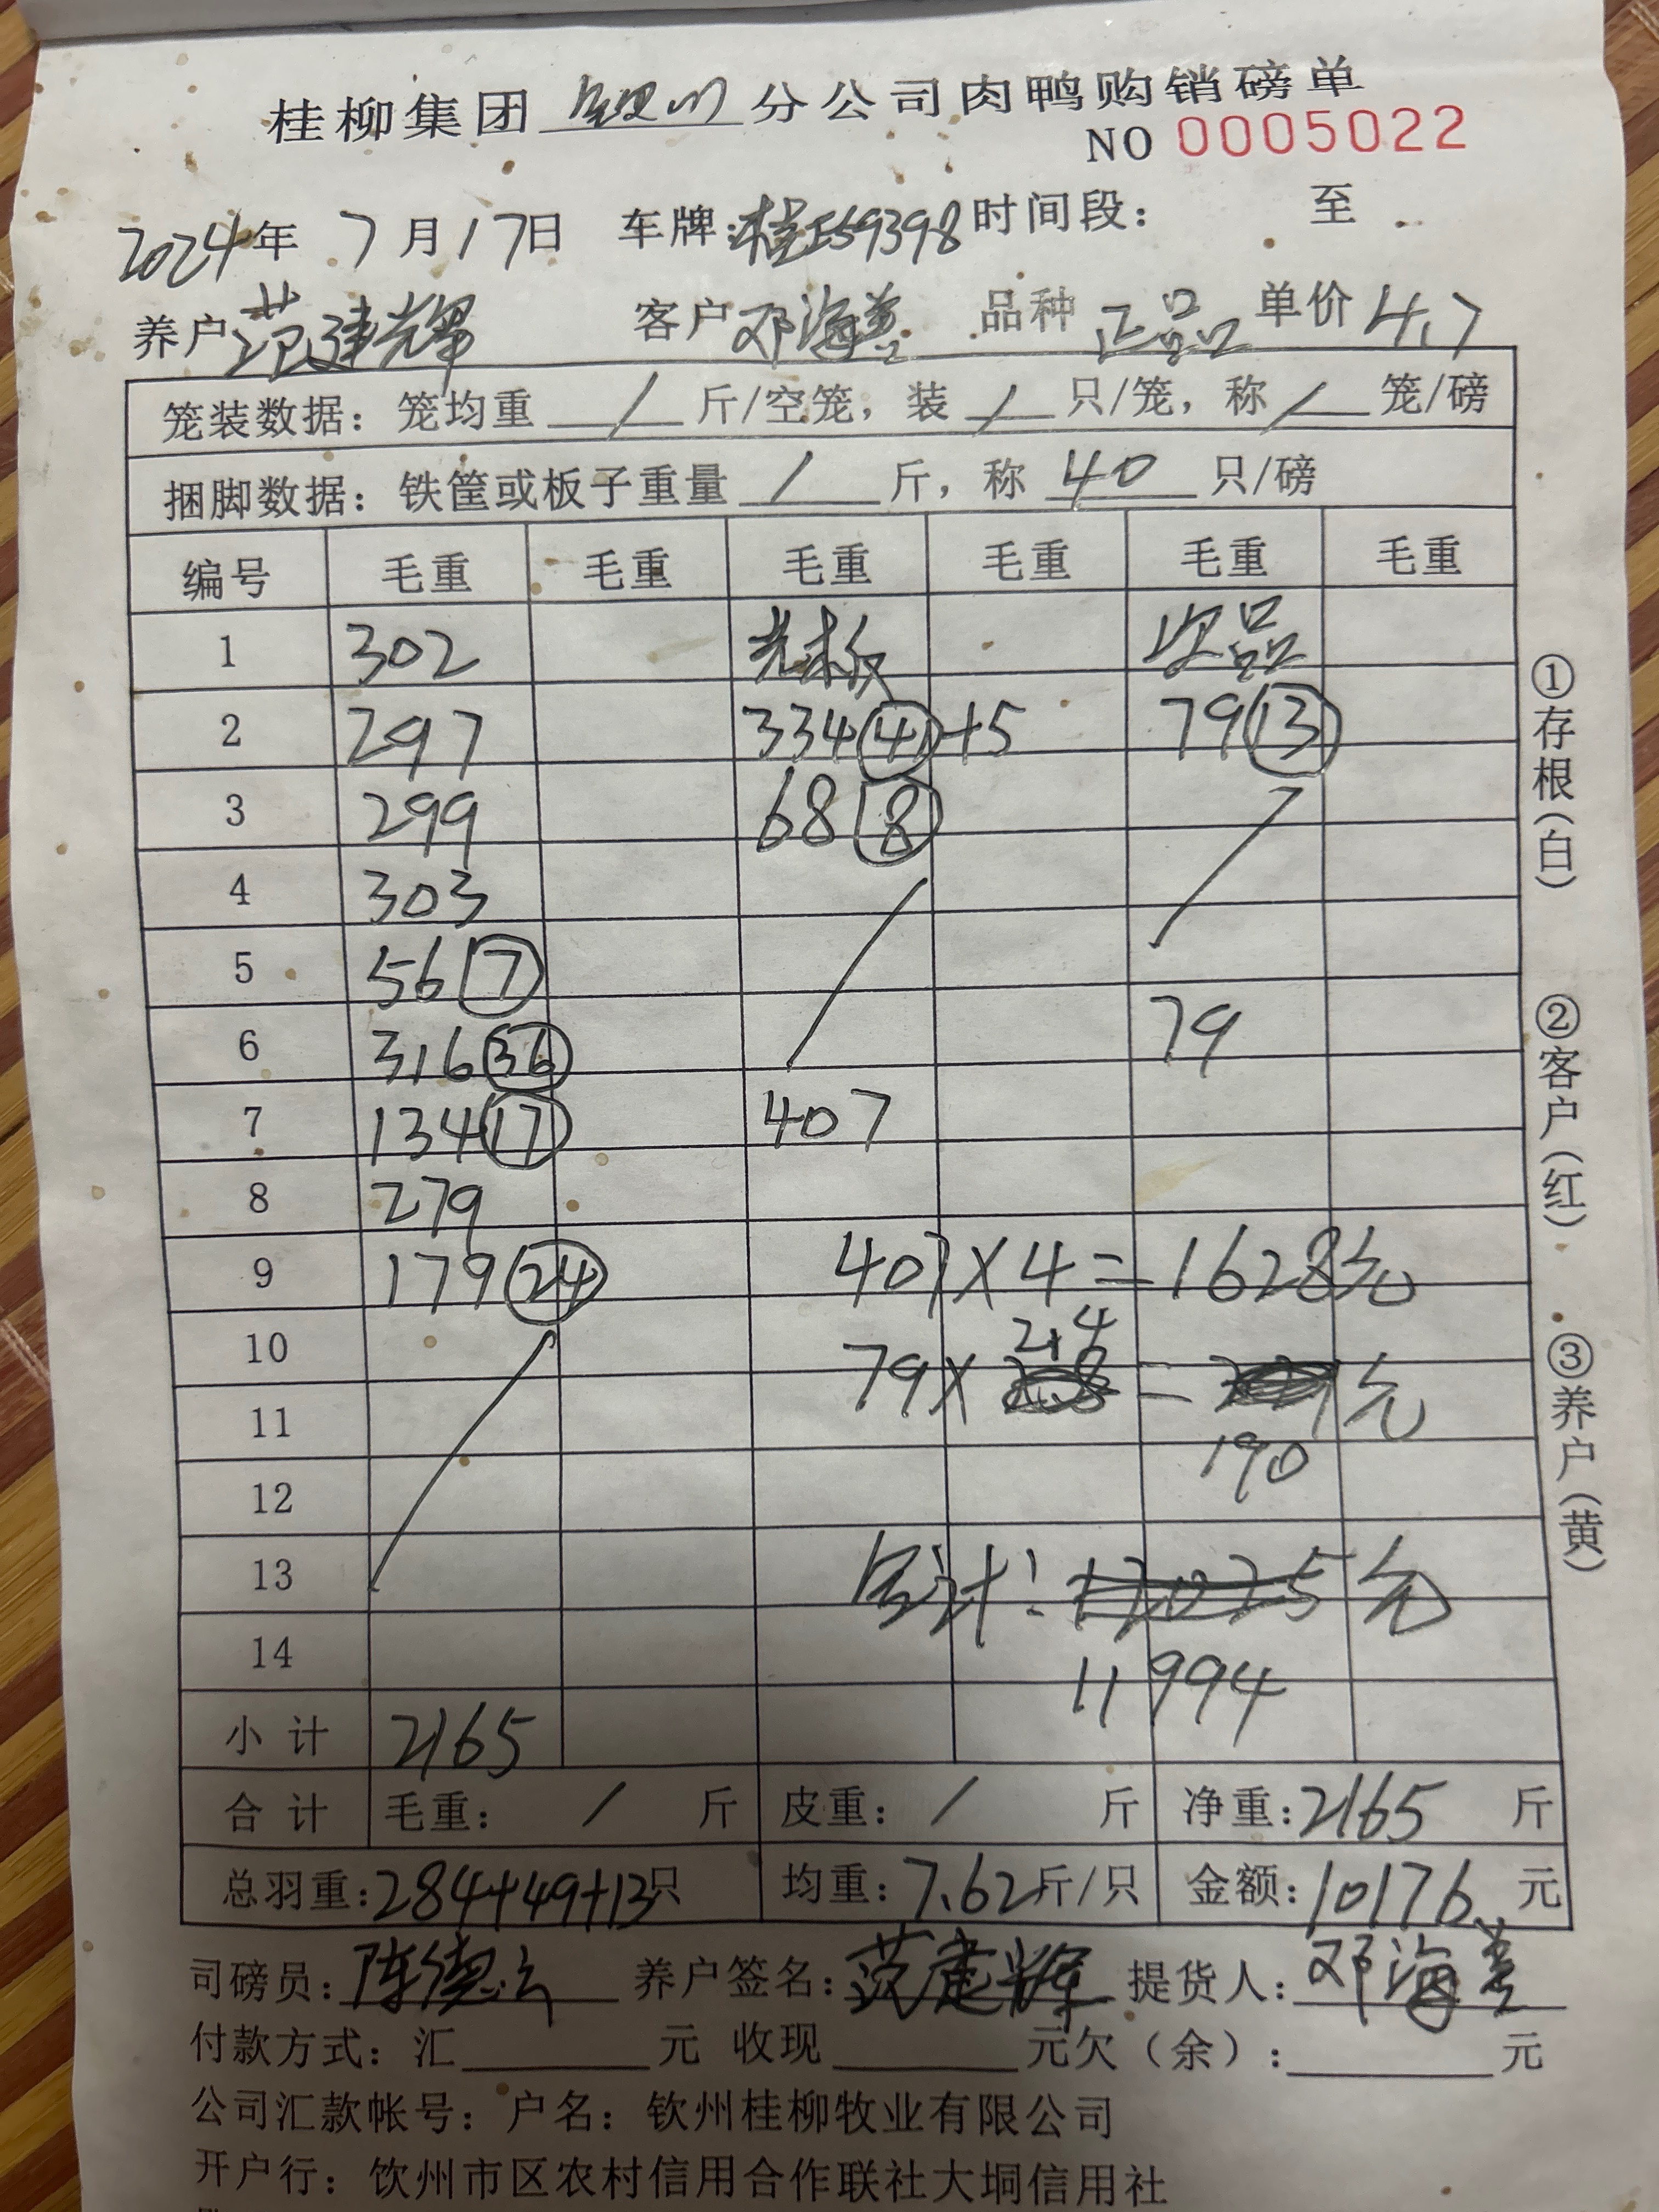 桂柳集团 钦州 分公司肉鸭购销磅单
NO 0005022
2024年 7月17日 车牌: 时间段: 至
养户 范建辉 客户 邓海 品种 正品 单价 4.7
笼装数据: 笼均重 / 斤/空笼, 装 / 只/笼, 称 / 笼/磅
捆脚数据: 铁筐或板子重量 / 斤, 称 40 只/磅
编号 毛重 毛重 毛重 毛重 毛重 毛重
1 302 光板 次品
2 297 334 (41) +5 79 (13)
3 299 68 (8)
4 303
5 56 (7)
6 316 (36) 79
7 134 (17) 407
8 279
9 179 (24) 407×4=1628元
10 2.4
11 79× = 元
12 190
13 合计: 元
14 11994
小计 2165
合计 毛重: / 斤 皮重: / 斤 净重: 2165 斤
总羽重: 284+49+13只 均重: 7.62斤/只 金额: 10176 元
司磅员: 陈德 养户签名: 范建辉 提货人: 邓海
付款方式: 汇 元 收现 元欠(余): 元
公司汇款帐号: 户名: 钦州桂柳牧业有限公司
开户行: 钦州市区农村信用合作联社大垌信用社
①存根(白) ②客户(红) ③养户(黄)